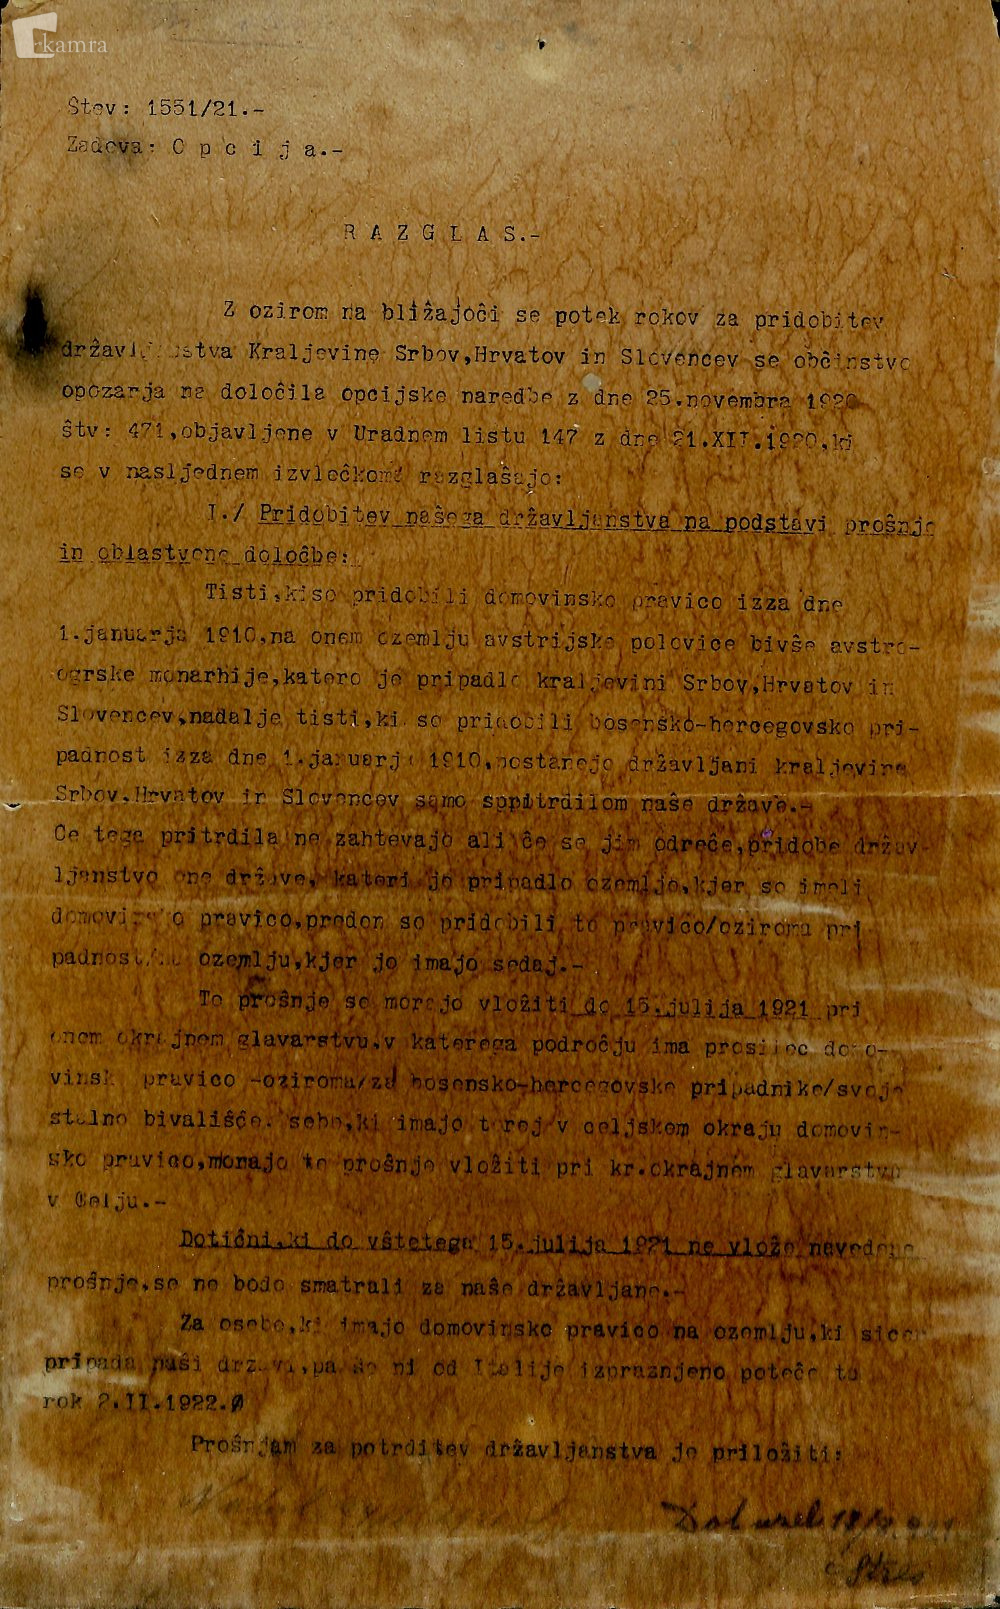 kamra
Štev: 1551/21.-
Zadeva: O p c i j a.-
R A Z G L A S.-
Z ozirom na bližajoči se potek rokov za pridobitev
državljanstva Kraljevine Srbov,Hrvatov in Slovencev se občinstvo
opozarja na določila opcijske naredbe z dne 25.novembra 1920
štv: 471,objavljene v Uradnem listu 147 z dne 21.XII.1920,ki
se v nasljednem izvlečkoma razglašajo:
I./ Pridobitev našega državljanstva na podstavi prošnje
in oblastvene določbe:
Tisti,kiso pridobili domovinsko pravico izza dne
1.januarja 1910,na onem ozemlju avstrijske polovice bivše avstro-
ogrske monarhije,katero je pripadlo kraljevini Srbov,Hrvatov in
Slovencev,nadalje tisti,ki so pridobili bosensko-hercegovsko pri-
padnost izza dne 1.januarja 1910,postanejo državljani kraljevine
Srbov,Hrvatov in Slovencev samo sppitrdilom naše države.-
Ce tega pritrdila ne zahtevajo ali če se jim odreče,pridobe držav-
ljanstvo one države, kateri je pripadlo ozemlje,kjer so imeli
domovinsko pravico,preden so pridobili to pravico/oziroma pri
padnost/na ozemlju,kjer jo imajo sedaj.-
Te prošnje se morejo vložiti do 15.julija 1921 pri
onem okrajnem glavarstvu,v katerega področju ima prosilec domo-
vinsk pravico -oziroma/za bosensko-hercegovske pripadnike/svoje
stalno bivališče. sebe,ki imajo torej v celjskem okraju domovin-
sko pravico,morajo te prošnje vložiti pri kr.okrajnem glavarstvu
v Celju.-
Dotični,ki do vštetega 15.julija 1921 ne vlože navedene
prošnje,se ne bodo smatrali za naše državljane.-
Za osebe,ki imajo domovinsko pravico na ozemlju,ki sicer
pripada naši državi,pa še ni od Italije izpraznjeno poteče ta
rok 2.II.1922.
Prošnjam za potrditev državljanstva je priložiti: